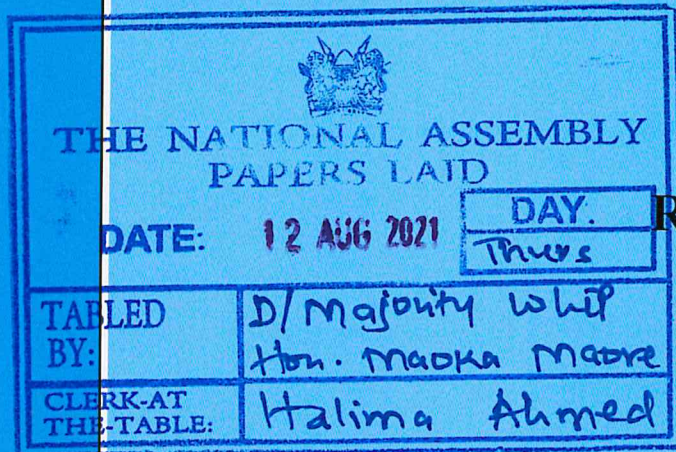 THE NATIONAL ASSEMBLY
PAPERS LAID
DATE: 12 AUG 2021 DAY. R
Thurs
TABLED BY: D/Majority Whip
Hon. Maoka Maore
CLERK-AT THE-TABLE: Halima Ahmed